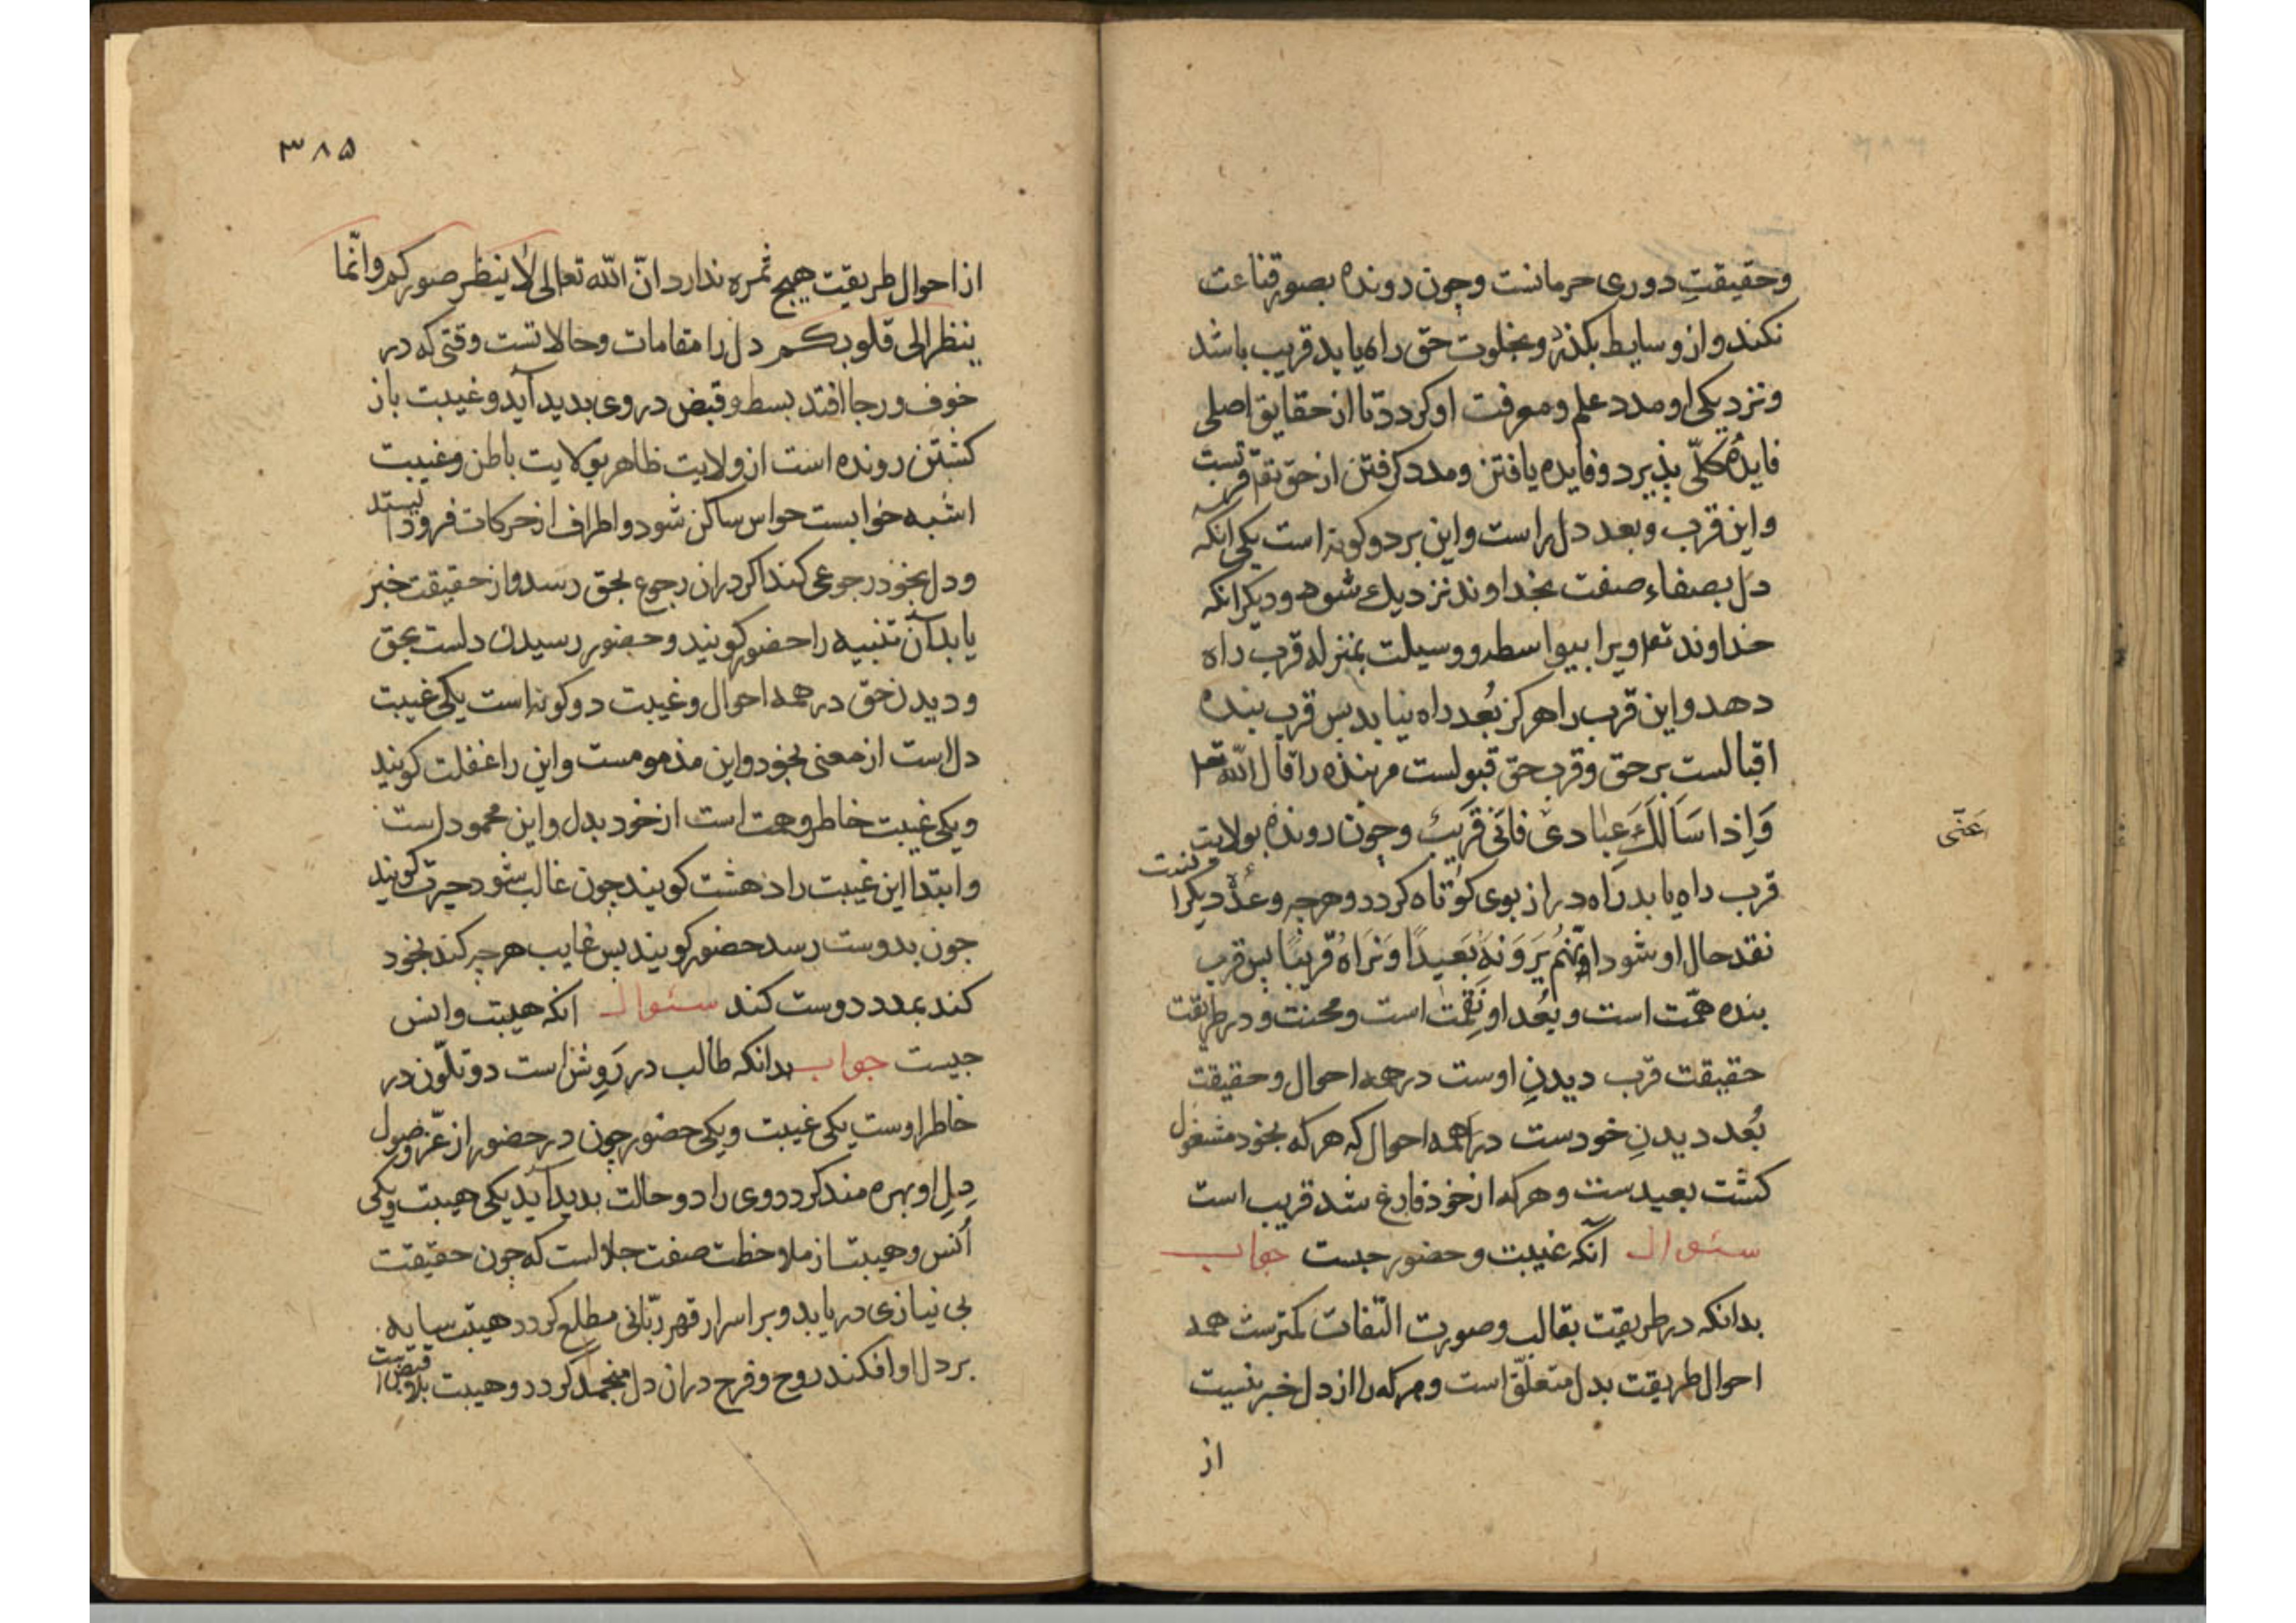 وحقیقتِ دوری حرمانست وچون رونده بصور قناعت
نکند واز وسایط بکذرد وبخلوت حق راه یابد قریب باشد
ونزدیکی او مدد علم ومعرفت او کردد تا از حقایق اصلی
فایدهٔ کلّی پذیرد وفایده یافتن ومدد کرفتن از حق تعم قربتست
واین قرب وبعد دل راست واین بر دو کونه است یکی انکه
دل بصفاءِ صفت بخداوند نزدیك شود ودیکر انکه
خداوند تعم ویرا بیواسطه ووسیلت بمنزله قرب راه
دهد واین قرب را هرکز بُعد راه نیابد بس قرب بنده
اقبالست بر حق وقرب حق قبولست مر بنده را قال الله تعم
وَاِذا سَاَلَكَ عِبادی فانّی قَریبٌ وچون رونده بولایت
عَنّی
قرب راه یابد راه دراز بوی کوتاه کردد وهرچه وعدۀ دیکرانست
نقد حال او شود اِنّهُم یَرَوْنَهُ بَعیدًا وَنَراهُ قَریبًا بس قرب
بنده همّت است وبُعد او نِقمت است ومحنت ودر طریقت
حقیقت قرب دیدنِ اوست در همه احوال وحقیقت
بُعد دیدنِ خودست در همه احوال که هر که بخود مشغول
کشت بعیدست وهر که از خود فارغ شد قریب است
سئوال انکه غیبت وحضور چیست جواب
بدانکه در طریقت بقالب وصورت التفات کمترست همه
احوال طریقت بدل متعلّق است وهر که را از دل خبر نیست
از
۳۸۵
از احوال طریقت هیچ ثمره ندارد انّ الله تعالی لا ینظر صورکم وانّما
ینظر الی قلوبکم دل را مقامات وحالاتست وقتی که در
خوف ورجا افتد بسط وقبض در وی بدید آید وغیبت باز
کشتن رونده است از ولایت ظاهر بولایت باطن وغیبت
اشبه خوابست حواس ساکن شود واطراف از حرکات فرو ایستد
ودل بخود رجوعی کند اکر دران رجوع بحق رسد واز حقیقت خبر
یابد آن تنبیه را حضور کویند وحضور رسیدن دلست بحق
ودیدن حق در همه احوال وغیبت دو کونه است یکی غیبت
دل است از معنی بخود واین مذمومست واین را غفلت کویند
ویکی غیبت خاطر وهمت است از خود بدل واین محمود است
وابتدا این غیبت را دهشت کویند چون غالب شود حیرت کویند
چون بدوست رسد حضور کویند بس غایب هرچه کند بخود
کند بمدد دوست کند سئوال انکه هیبت وانس
چیست جواب بدانکه طالب در رَوِش است دو تلّون در
خاطر اوست یکی غیبت ویکی حضور چون در حضور از عزّ وصول
دِلِ او بهره مند کردد وی را دو حالت بدید آید یکی هیبت ویکی
اُنس وهیبت از ملاحظت صفت جلالست که چون حقیقت
بی نیازی دریابد وبر اسرار قهر ربّانی مطلع کردد هیبت سایه
بر دل او افکند روح وفرح دران دل منجمد کردد وهیبت بلا قبض است